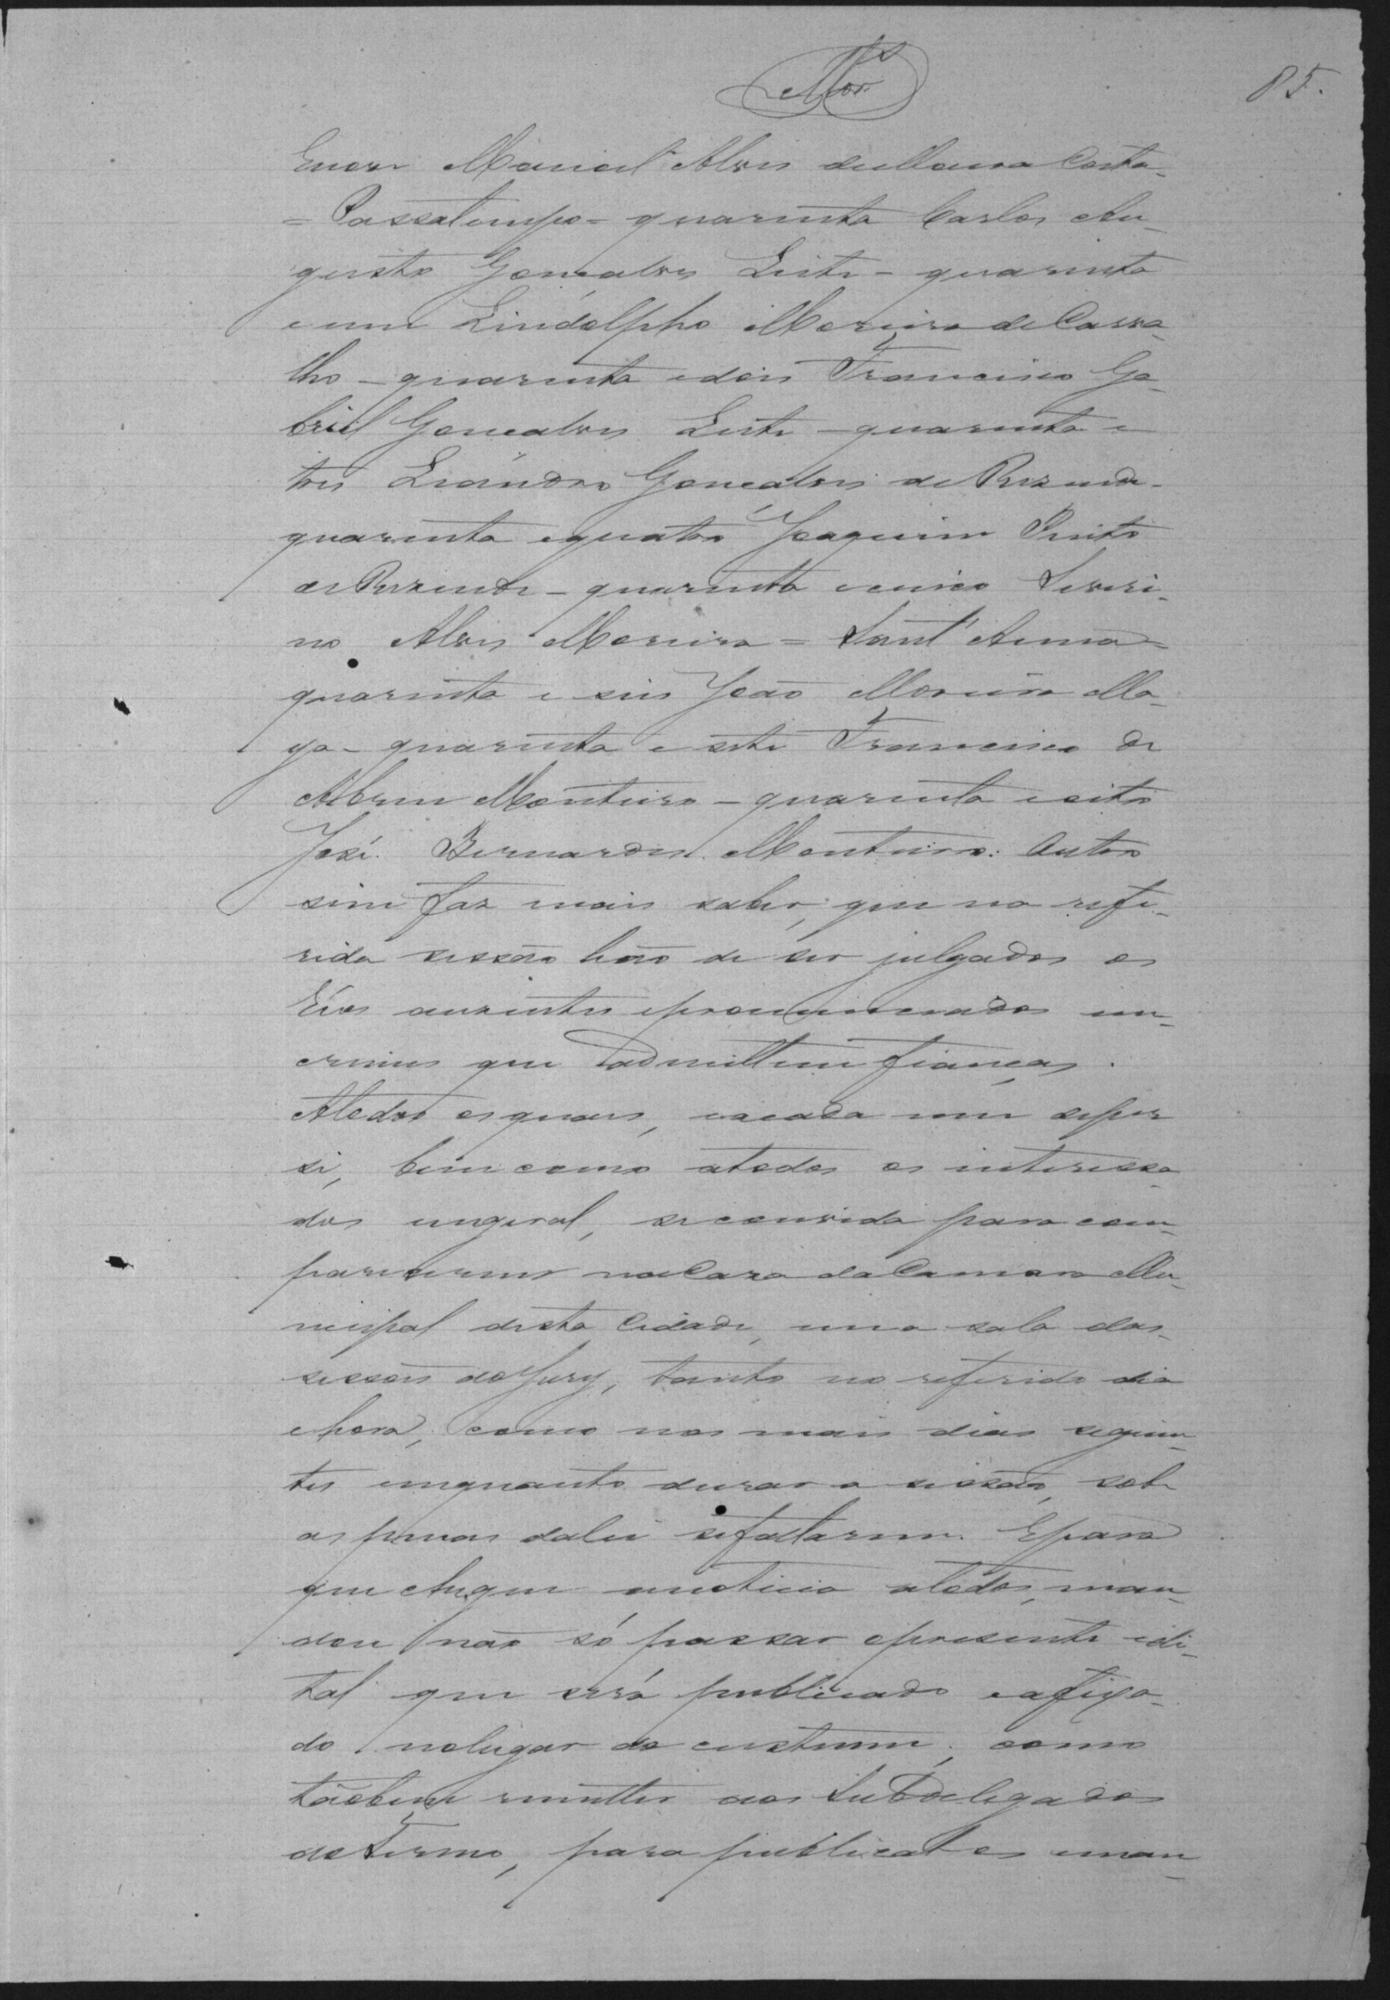 85.
Manoel Alves de Moura Costa
= Passatempo = quarenta Carlos Au-
gusto Gonçalves Leite - quarenta
e um Lindolpho Moreira de Carva-
lho - quarenta e dois Francisco Ga-
briel Gonçalves Leite - quarenta e
tres Leandro Gonçalves de Rezende -
quarenta e quatro Joaquim Pinto
de Rezende - quarenta e cinco Severi-
no Alves Moreira = Sant'Anna =
quarenta e seis João Moreira Ma-
ya - quarenta e sete Francisco de
Abreu Monteiro - quarenta e oito
José Bernardes Monteiro. Outro
sim faz mais saber, que na refe-
rida sessão hão de ser julgados os
Réos auzentes e pronunciados em
crimes que admittem fianças.
A todos os quaes, e a cada um de per
si, bem como a todos os interessa-
dos em geral, se convida para com-
parecerem na Caza da Camara Mu-
nicipal desta Cidade, em a sala das
sessões do Jury, tanto no referido dia
e hora, como nos mais dias seguin-
tes emquanto durar a sessão, sob
as penas da lei se faltarem. E para
que chegue a noticia a todos, man-
dou não só passar o presente edi-
tal que será publicado e afixa-
do no lugar do custume, como
tãobem remetter aos Subdelegados
do Termo, para publical-os e man-